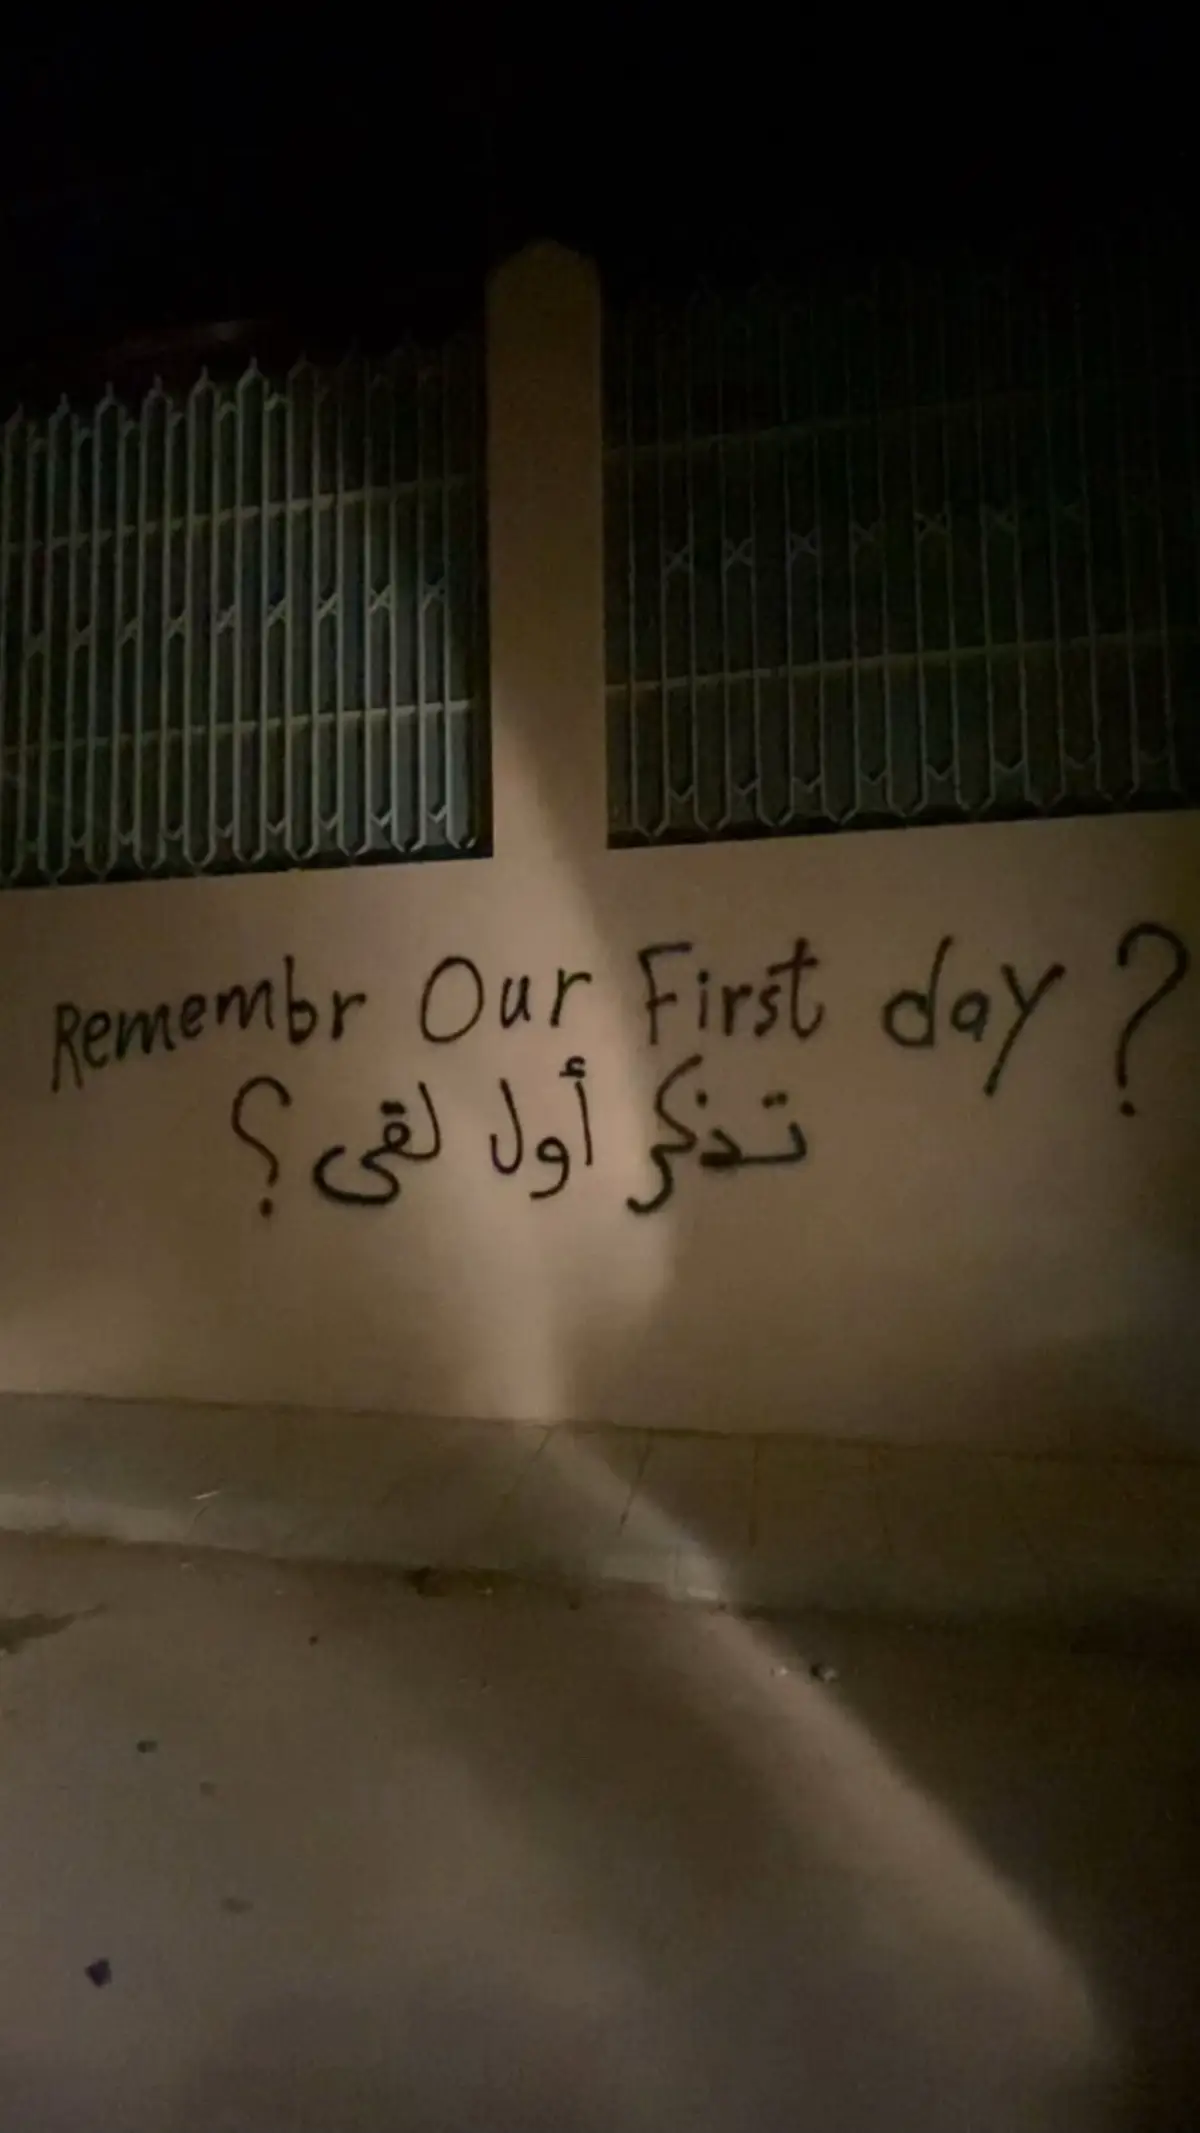 Remembr Our First day ?
تذكر أول لقى ؟